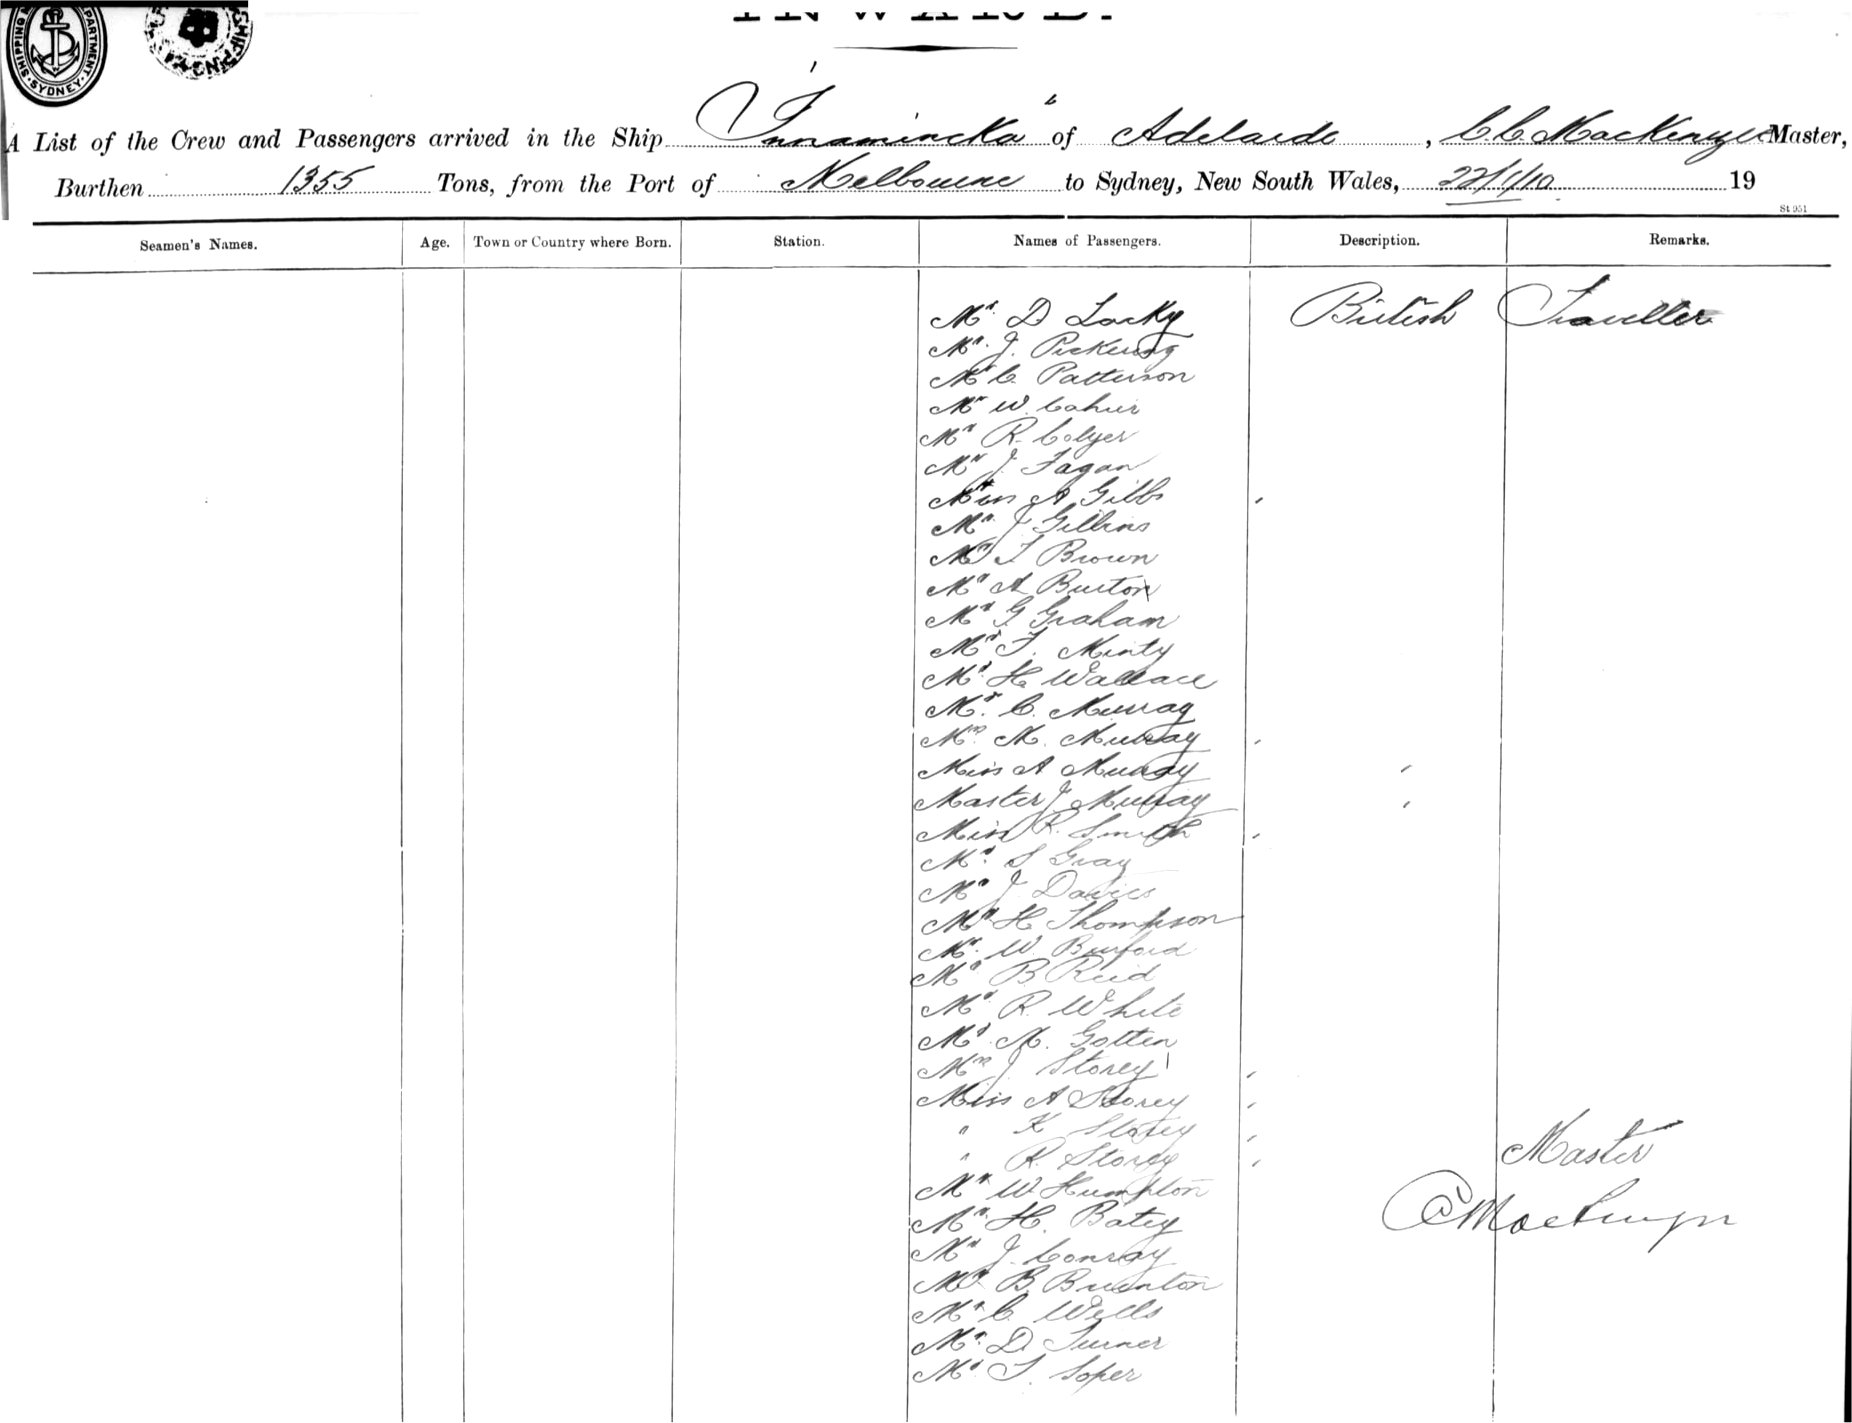 INWARD.
SHIPPING DEPARTMENT SYDNEY
A List of the Crew and Passengers arrived in the Ship "Innamincka" of Adelaide, C. C. MacKenzie Master,
Burthen 1355 Tons, from the Port of Melbourne to Sydney, New South Wales, 22/1/10 19
St 951
Seamen's Names. Age. Town or Country where Born. Station. Names of Passengers. Description. Remarks.
Mr. D Locky British Traveller
Mr. J. Pickering
Mr C. Patterson
Mr W. Cahir
Mr R. Colyer
Mr J. Fagan
Miss A Gibbs
Mr. J Gillins
Mr T Brown
Mr A Burton
Mr G Graham
Mr F. Minty
Mr. H Wallace
Mr. C. Murray
Mrs. M. Murray
Miss A Murray
Master J Murray
Miss R. Smith
Mr. S Gray
Mr J. Davies
Mr H Thompson
Mr. W. Burford
Mr B. Reid
Mr. R. White
Mr. M. Gotten
Mrs J. Storey
Miss A Storey
" K Storey
" R. Storey Master
Mr W Humpton
Mr. H. Batey C MacKenzie
Mr J. Conroy
Mr. B. Brunton
Mr C Wells
Mr. D Turner
Mr T. Soper